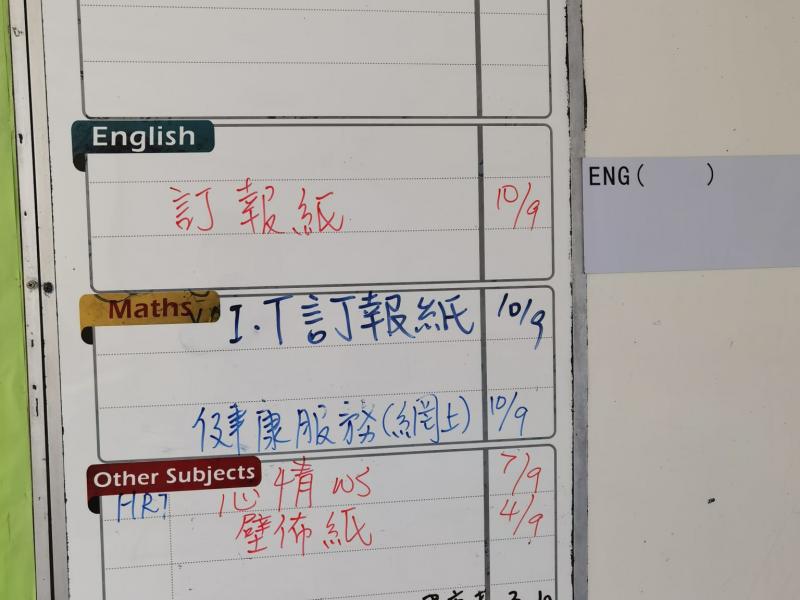 English
訂報紙 10/9
ENG( )
Maths I.T訂報紙 10/9
健康服務(網上) 10/9
Other Subjects
HRT 心情 WS 7/9
壁佈紙 4/9